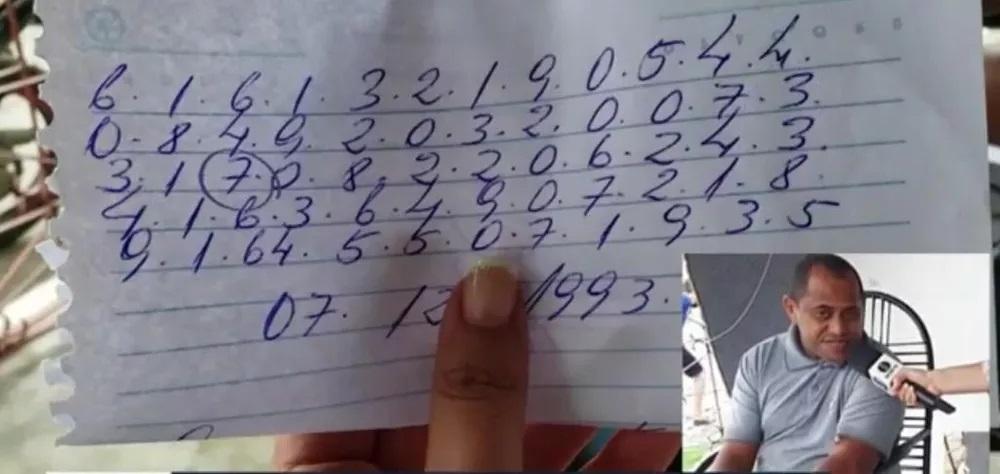 6. 1. 6. 1. 3. 2. 1. 9. 0. 5. 4. 4.
0. 8. 4. 9. 2. 0. 3. 2. 0. 0. 7. 3.
3. 1 7. 0. 8. 2. 2. 0. 6. 2. 4. 3.
4. 1. 6. 3. 6. 4. 9. 0. 7. 2. 1. 8.
9. 1. 64. 5. 5. 0. 7. 1. 9. 3. 5
07. 12 1993.